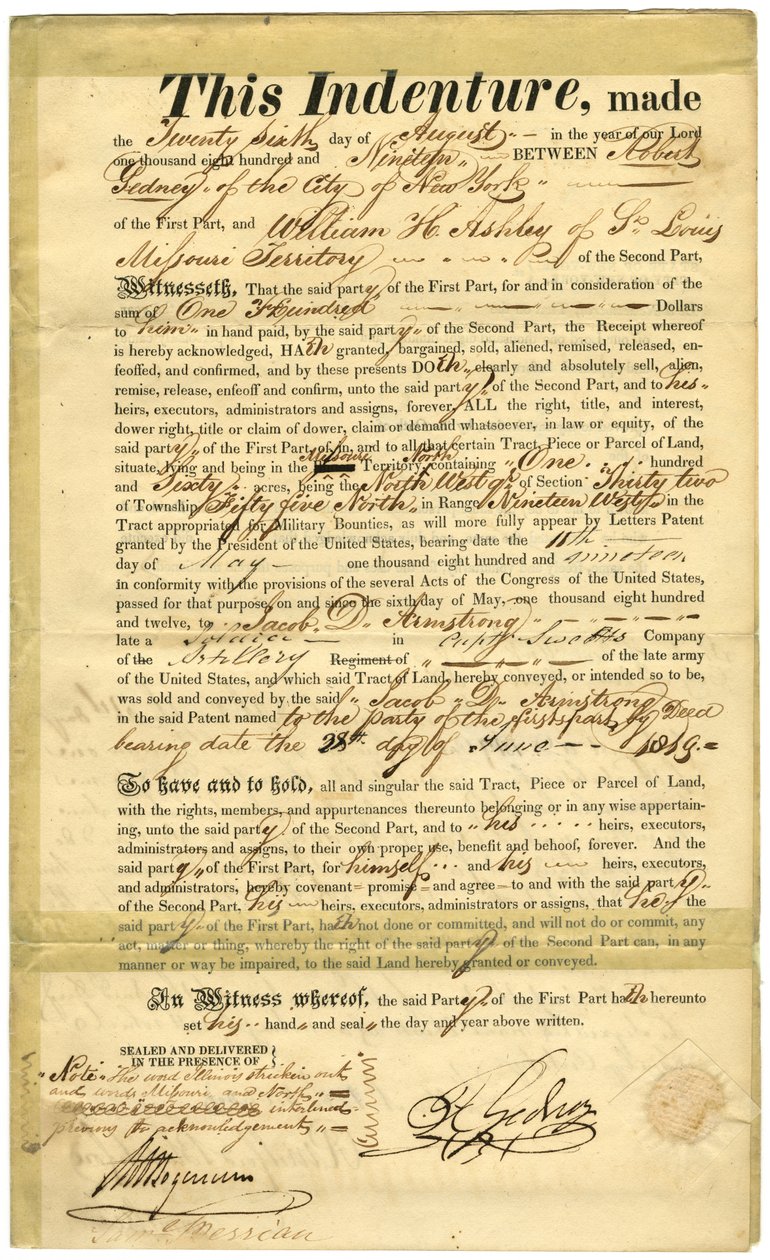 This Indenture, made
the Twenty Sixth day of August in the year of our Lord
one thousand eight hundred and Nineteen BETWEEN Robert
Gedney of the City of New York
of the First Part, and William H. Ashley of St Louis
Missouri Territory of the Second Part,
Witnesseth, That the said party of the First Part, for and in consideration of the
sum of One Hundred Dollars
to him in hand paid, by the said party of the Second Part, the Receipt whereof
is hereby acknowledged, HAth granted, bargained, sold, aliened, remised, released, en-
feoffed, and confirmed, and by these presents DOth clearly and absolutely sell, alien,
remise, release, enfeoff and confirm, unto the said party of the Second Part, and to his
heirs, executors, administrators and assigns, forever, ALL the right, title, and interest,
dower right, title or claim of dower, claim or demand whatsoever, in law or equity, of the
said party of the First Part, of, in, and to all that certain Tract, Piece or Parcel of Land,
Missouri North
situate, lying and being in the Territory, containing One hundred
and Sixty acres, being the North West qr of Section Thirty two
of Township Fifty five North in Range Nineteen West in the
Tract appropriated for Military Bounties, as will more fully appear by Letters Patent
granted by the President of the United States, bearing date the
day of May one thousand eight hundred and nineteen
in conformity with the provisions of the several Acts of the Congress of the United States,
passed for that purpose, on and since the sixth day of May, one thousand eight hundred
and twelve, to Jacob D. Armstrong
late a Soldier in Capt. Company
of the Artillery Regiment of of the late army
of the United States, and which said Tract of Land, hereby conveyed, or intended so to be,
was sold and conveyed by the said Jacob D. Armstrong
in the said Patent named to the party of the first part by Deed
bearing date the 28th day of June 1819.
To have and to hold, all and singular the said Tract, Piece or Parcel of Land,
with the rights, members, and appurtenances thereunto belonging or in any wise appertain-
ing, unto the said party of the Second Part, and to his heirs, executors,
administrators and assigns, to their own proper use, benefit and behoof, forever. And the
said party of the First Part, for himself and his heirs, executors,
and administrators, hereby covenant promise and agree to and with the said party
of the Second Part, his heirs, executors, administrators or assigns, that he the
said party of the First Part, hath not done or committed, and will not do or commit, any
act, matter or thing, whereby the right of the said party of the Second Part can, in any
manner or way be impaired, to the said Land hereby granted or conveyed.
In Witness whereof, the said Party of the First Part hath hereunto
set his hand and seal the day and year above written.
SEALED AND DELIVERED
IN THE PRESENCE OF
"Note" The word Illinois stricken out
and words Missouri and North
interlined
previous to acknowledgement
R Gedney
Saml Merrian